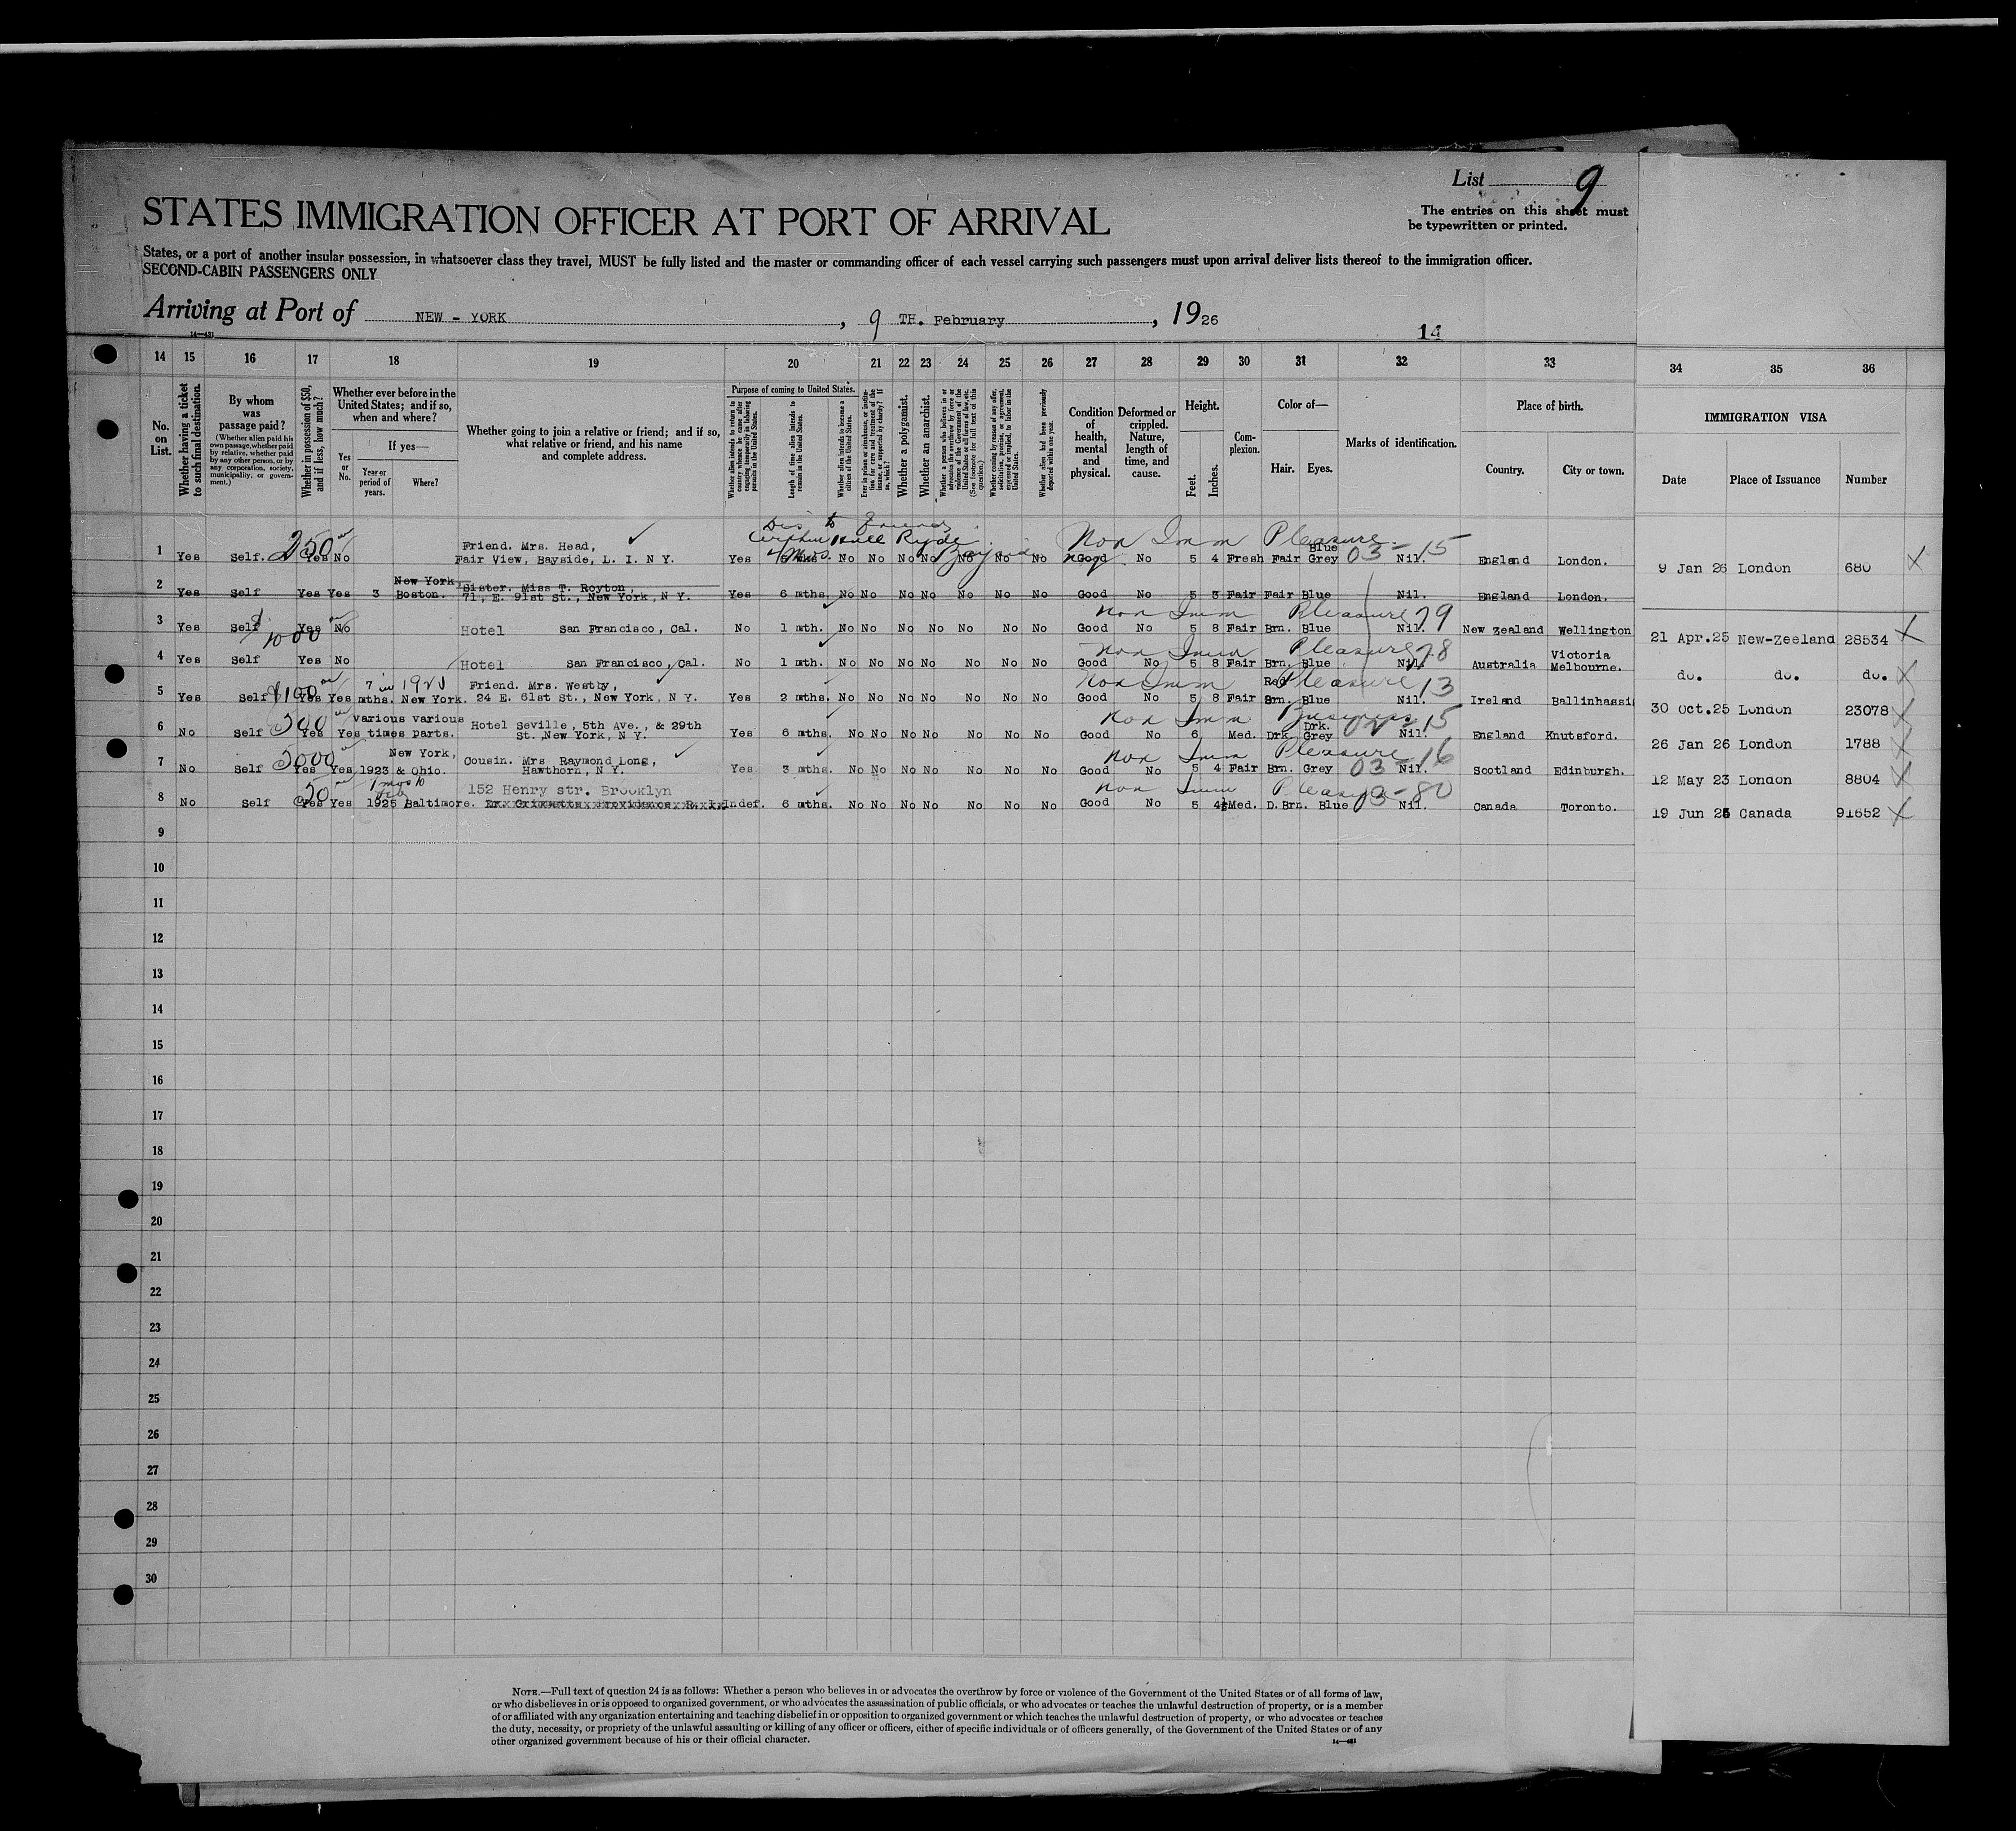 List 9
The entries on this sheet must
be typewritten or printed.
STATES IMMIGRATION OFFICER AT PORT OF ARRIVAL
States, or a port of another insular possession, in whatsoever class they travel, MUST be fully listed and the master or commanding officer of each vessel carrying such passengers must upon arrival deliver lists thereof to the immigration officer.
SECOND-CABIN PASSENGERS ONLY
Arriving at Port of NEW - YORK, 9 TH. February, 1926
14—431
14
14 15 16 17 18 19 20 21 22 23 24 25 26 27 28 29 30 31 32 33 34 35 36
No. on List.
Whether having a ticket to such final destination.
By whom was passage paid?
(Whether alien paid his own passage, whether paid by relative, whether paid by any other person, or by any corporation, society, municipality, or government.)
Whether in possession of $50, and if less, how much?
Whether ever before in the United States; and if so, when and where?
Yes or No.
If yes—
Year or period of years.
Where?
Whether going to join a relative or friend; and if so, what relative or friend, and his name and complete address.
Purpose of coming to United States.
Whether alien intends to return to country whence he came after engaging temporarily in laboring pursuits in the United States.
Length of time alien intends to remain in the United States.
Whether alien intends to become a citizen of the United States.
Ever in prison or almshouse, or institution for care and treatment of the insane, or supported by charity? If so, which?
Whether a polygamist.
Whether an anarchist.
Whether a person who believes in or advocates the overthrow by force or violence of the Government of the United States or all forms of law, etc. (See footnote for full text of this question.)
Whether coming by reason of any offer, solicitation, promise, or agreement, expressed or implied, to labor in the United States.
Whether alien had been previously deported within one year.
Condition of health, mental and physical.
Deformed or crippled. Nature, length of time, and cause.
Height.
Feet.
Inches.
Complexion.
Color of—
Hair. Eyes.
Marks of identification.
Place of birth.
Country. City or town.
IMMIGRATION VISA
Date Place of Issuance Number
Non Imm Pleasure
1 Yes Self. 250 Yes No Friend. Mrs. Head, Fair View, Bayside, L. I. N Y. Yes No No No No No No No Good No 5 4 Fresh Fair Blue Grey 03-15 Nil. England London. 9 Jan 26 London 680
2 Yes Self Yes Yes 3 New York, Boston. Sister. Miss T. Royton, 71, E. 91st St., New York, N Y. Yes 6 mths. No No No No No No No Good No 5 3 Fair Fair Blue Nil. England London.
Non Imm Pleasure 29
3 Yes Self Yes No Hotel San Francisco, Cal. No 1 mth. No No No No No No No Good No 5 8 Fair Brn. Blue Nil. New Zealand Wellington 21 Apr.25 New-Zeeland 28534
$1000
Non Imm Pleasure 28
4 Yes Self Yes No Hotel San Francisco, Cal. No 1 mth. No No No No No No No Good No 5 8 Fair Brn. Blue Nil. Australia Victoria Melbourne. do. do. do.
Non Imm Pleasure 13
5 Yes Self $100 Yes Yes 7 mths. in 1920 New York. Friend. Mrs. Westby, 24 E. 61st St., New York, N Y. Yes 2 mths. No No No No No No No Good No 5 8 Fair Red Brn. Blue Nil. Ireland Ballinhassi 30 Oct.25 London 23078
Non Imm Business
6 No Self 500 Yes Yes various times various parts. Hotel Seville, 5th Ave., & 29th St., New York, N Y. Yes 6 mths. No No No No No No No Good No 6 Med. Drk. Drk. Grey 02-15 Nil. England Knutsford. 26 Jan 26 London 1788
Non Imm Pleasure
7 No Self 5000 Yes Yes 1923 New York, & Ohio. Cousin. Mrs Raymond Long, Hawthorn, N Y. Yes 3 mths. No No No No No No No Good No 5 4 Fair Brn. Grey 03-16 Nil. Scotland Edinburgh. 12 May 23 London 8804
Non Imm Pleasure
8 No Self 50 Yes Yes 1925 Baltimore. 152 Henry str. Brooklyn Indef. 6 mths. No No No No No No No Good No 5 4½ Med. D.Brn. Blue 3-80 Nil. Canada Toronto. 19 Jun 25 Canada 91652
9
10
11
12
13
14
15
16
17
18
19
20
21
22
23
24
25
26
27
28
29
30
NOTE.—Full text of question 24 is as follows: Whether a person who believes in or advocates the overthrow by force or violence of the Government of the United States or of all forms of law,
or who disbelieves in or is opposed to organized government, or who advocates the assassination of public officials, or who advocates or teaches the unlawful destruction of property, or is a member
of or affiliated with any organization entertaining and teaching disbelief in or opposition to organized government or which teaches the unlawful destruction of property, or who advocates or teaches
the duty, necessity, or propriety of the unlawful assaulting or killing of any officer or officers, either of specific individuals or of officers generally, of the Government of the United States or of any
other organized government because of his or their official character.
14—431